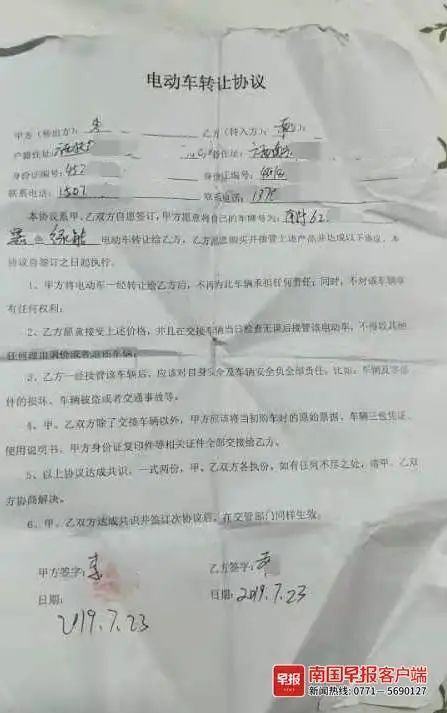 电动车转让协议
甲方（转出方）： 乙方（转入方）：
户籍住址： 户籍住址：
身份证编号：452 身份证编号：
联系电话：1507 联系电话：1378
本协议系甲、乙双方自愿签订，甲方愿意将自己的车牌号为： 62
黑色绿能 电动车转让给乙方，乙方愿意购买并接管上述产品并达成以下协议。本
协议自签订之日起执行。
1、甲方将电动车一经转让给乙方后，不再为此车辆承担任何责任；同时，不对该车辆享
有任何权利；
2、乙方愿意接受上述价格，并且在交接车辆当日检查无误后接管该电动车，不得以其他
任何理由退价或者退还车辆；
3、乙方一经接管该车辆后，应该对自身安全及车辆安全负全部责任。比如，车辆及零部
件的损坏、车辆被盗或者交通事故等。
4、甲、乙双方除了交接车辆以外，甲方应该将当初购车时的原始票据、车辆三包凭证、
使用说明书、甲方身份证复印件等相关证件全部交接给乙方。
5、以上协议达成共识，一式两份，甲、乙双方各执份，如有任何不尽之处，请甲、乙双
方协商解决。
6、甲、乙双方达成共识并签订次协议后，在交管部门同样生效。
甲方签字： 乙方签字：
日期： 日期：2019.7.23
2019.7.23
早报 南国早报客户端
新闻热线：0771—5690127